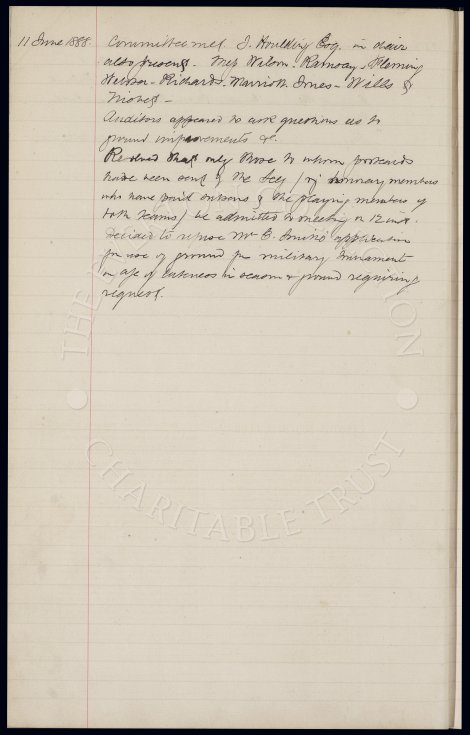 11 June 1888. Committee met J. Houlding Esq. in chair
also present. Mess Wilson - Ramsay - Fleming
Webster - Richards - Marriott - Jones - Wills &
Auditors appeared to ask questions as to
ground improvements &c.
Resolved that only those to whom postcards
have been sent by the Secy / viz honorary members
who have paid & the playing members of
both teams / be admitted to meeting on 12 inst.
Decided to refuse Mr E. Smith's application
for use of ground for military tournament
on a/c of lateness in season & ground requiring
request.
THE
CHARITABLE TRUST